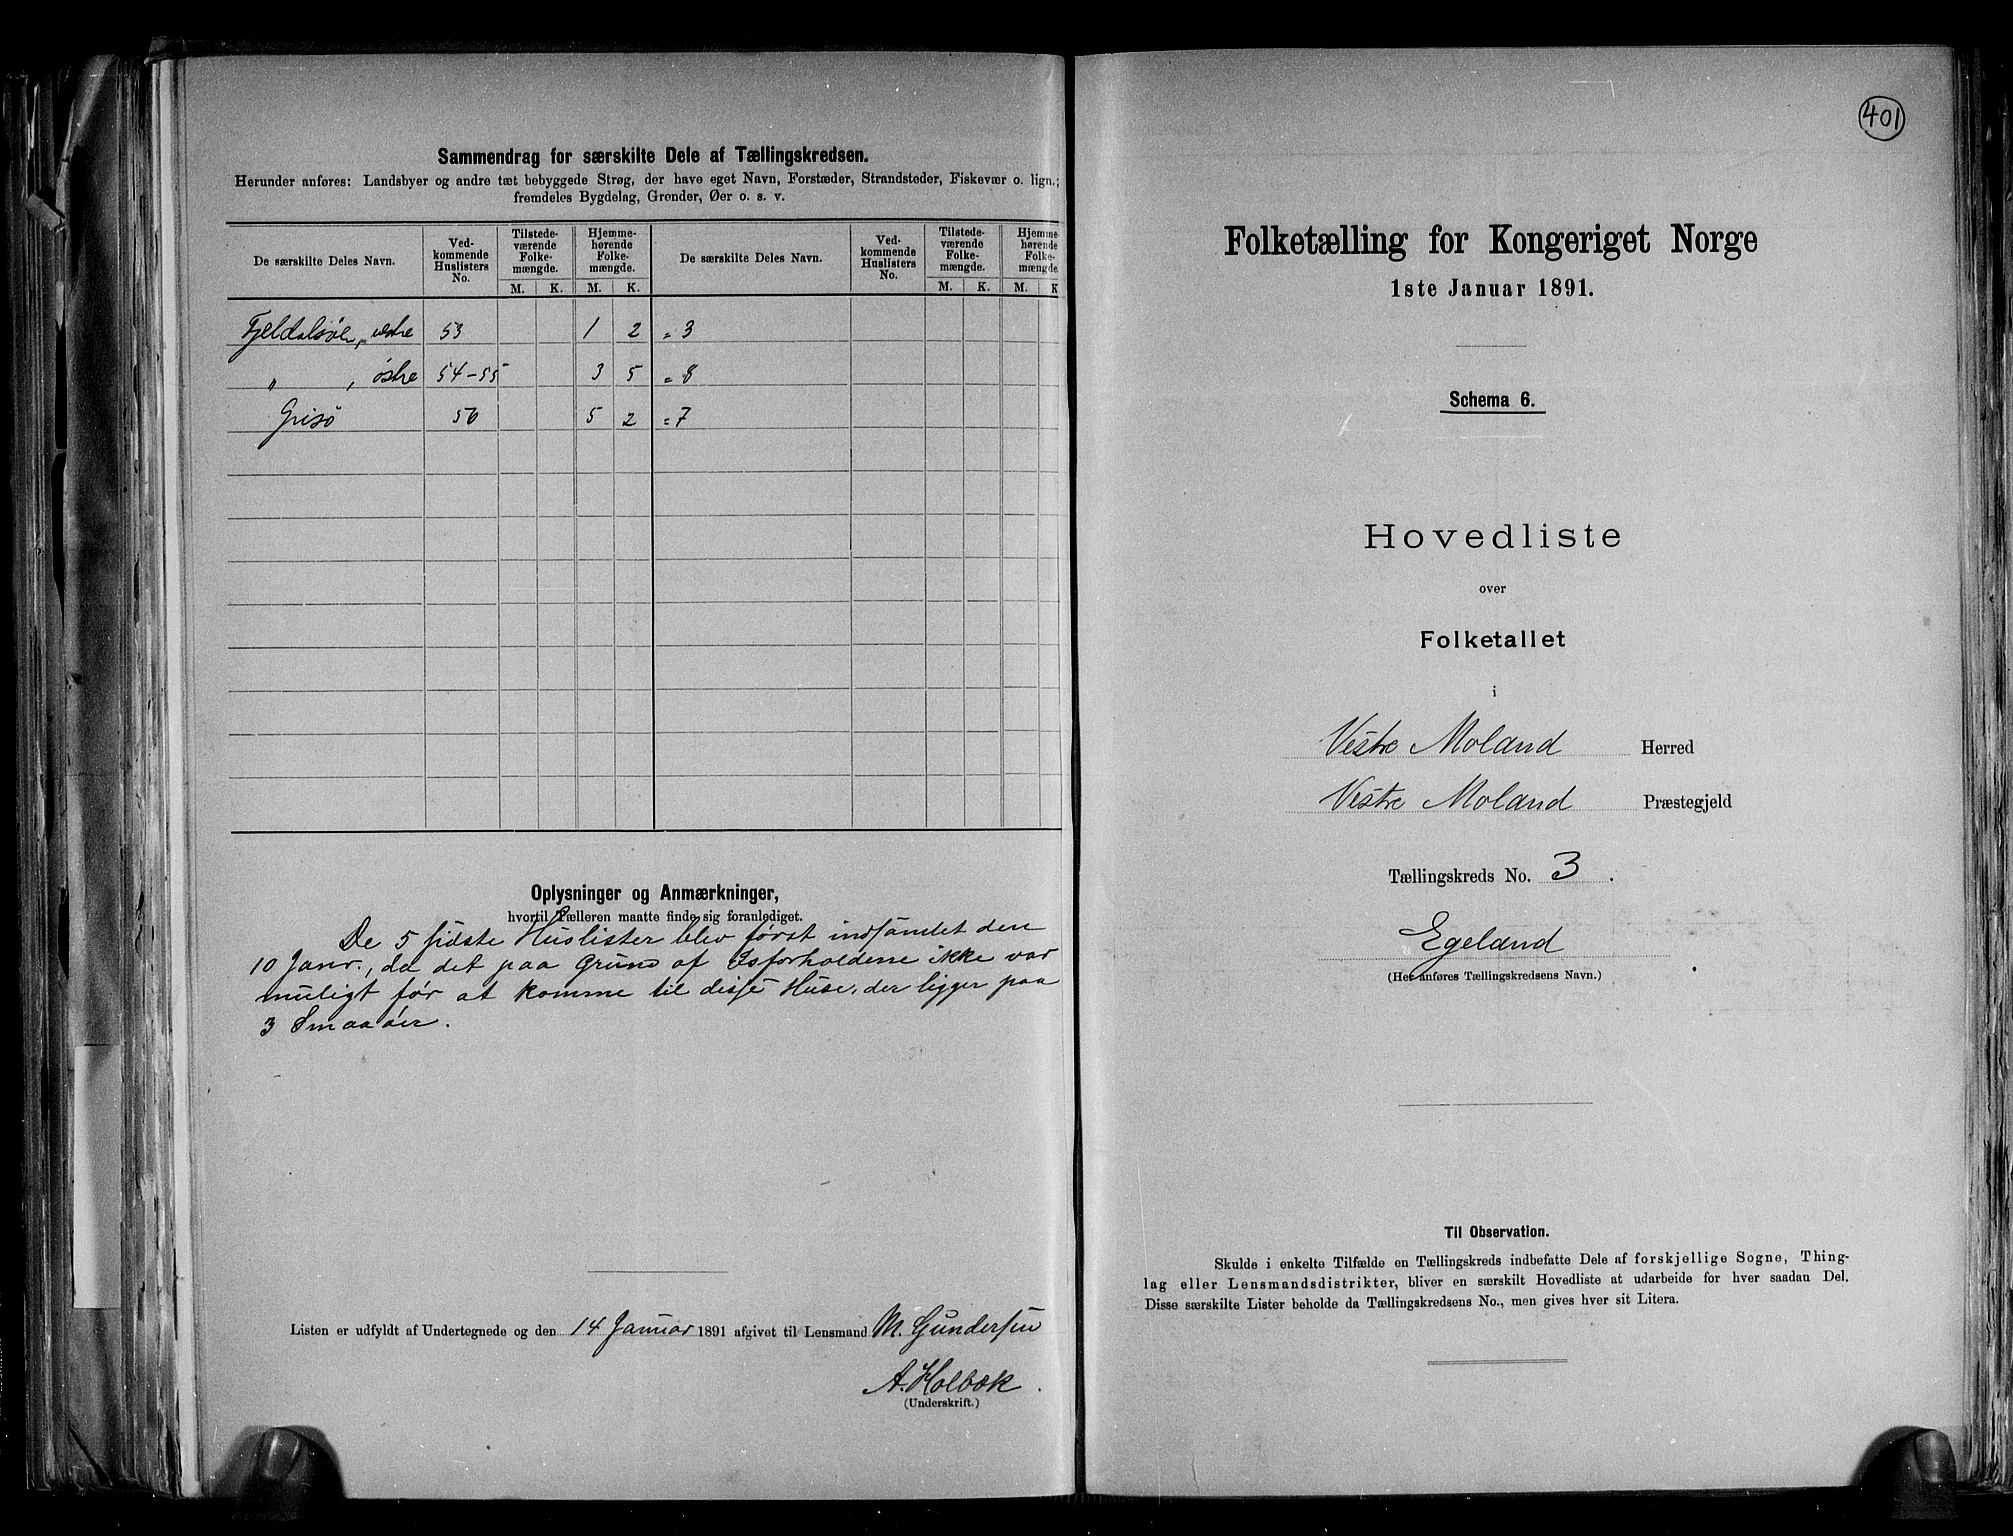 Sammendrag for særskilte Dele af Tællingskredsen.
Herunder anføres: Landsbyer og andre tæt bebyggede Strøg, der have eget Navn, Forstæder, Strandsteder, Fiskevær o. lign.;
fremdeles Bygdelag, Grender, Øer o. s. v.
De særskilte Deles Navn. Ved-kommende Huslisters No. Tilstede-værende Folke-mængde. Hjemme-hørende Folke-mængde. De særskilte Deles Navn. Ved-kommende Huslisters No. Tilstede-værende Folke-mængde. Hjemme-hørende Folke-mængde.
M. K. M. K. M. K. M. K
Fjeldalsøen, vestre 53 1 2 = 3
" , östre 54-55 3 5 = 8
Grisö 56 5 2 = 7
Oplysninger og Anmærkninger,
hvortil Tælleren maatte finde sig foranlediget.
De 5 sidste Huslister blev først indsamlet den
10 Janr., da det paa Grund af Isforholdene ikke var
muligt før at komme til disse Huse, der ligger paa
3 Smaaöer.
Listen er udfyldt af Undertegnede og den 14 Januar 1891 afgivet til Lensmand M. Gundersen
A. Holbæk.
(Underskrift.)
401
Folketælling for Kongeriget Norge
1ste Januar 1891.
Schema 6.
Hovedliste
over
Folketallet
i
Vestre Moland Herred
Vestre Moland Præstegjeld
Tællingskreds No. 3.
Egeland
(Her anføres Tællingskredsens Navn.)
Til Observation.
Skulde i enkelte Tilfælde en Tællingskreds indbefatte Dele af forskjellige Sogne, Thing-
lag eller Lensmandsdistrikter, bliver en særskilt Hovedliste at udarbeide for hver saadan Del.
Disse særskilte Lister beholde da Tællingskredsens No., men gives hver sit Litera.